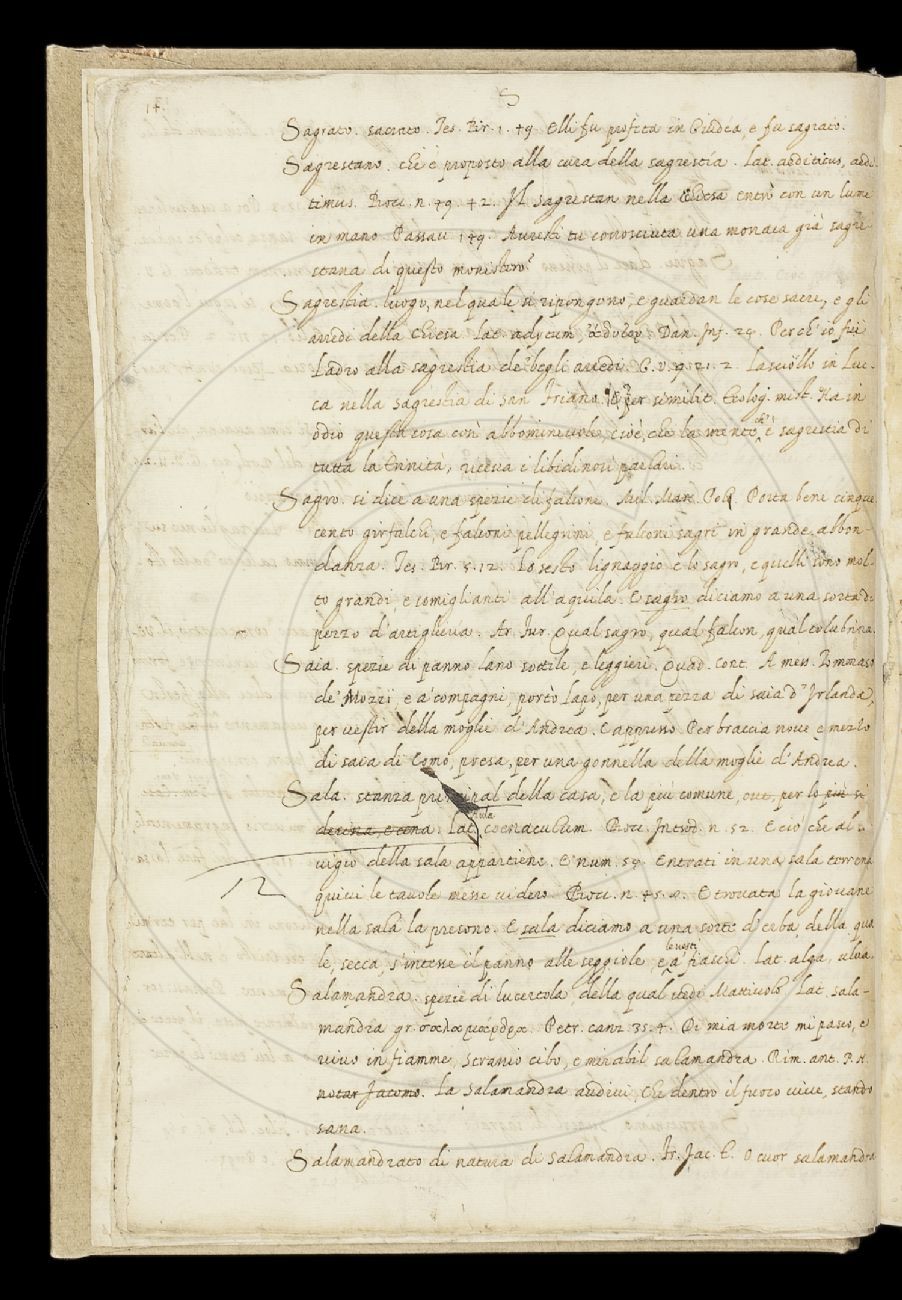 14.
S
Sagrato. sacrato. Tes. Br. 1. 49 Elli fu profeta in Giudéa, e fu sagrato.
Sagrestano. chi è proposto alla cura della sagrestía. Lat. aedituus, aedi-
timus. Bocc. n. 49. 42. Il sagrestan nella Chiesa entrò con un lume
in mano. Passav. 149. Avresti tu conosciuta una monaca già sagre-
stana di questo monistero?
Sagrestia. luogo, nel quale si ripongono, e guardan le cose sacre, e gli
arredi della Chiesa. Lat. adytum, ἄδυτον. Dan. Inf. 24. Perch' io fui
Ladro alla sagrestia de' begli arredi. G. V. 9. 21. 2. Lasciollo in Luc-
ca nella sagrestia di San Friano. E per similit. Teolog. mist. Ha in
odio questa cosa così abbominevole, cioè, che la mente, ch' è sagrestia di
tutta la Trinità, riceva i libidinosi parlari.
Sagro. si dice a una spezie di falcone. Mil. Marc. Pol. Porta bene cinque
cento girfalchi, e falconi pellegrini, e falconi sagri in grande abbon-
danza. Tes. Br. 5. 12. Lo sesto lignaggio è lo sagro, e quelli sono mol-
to grandi, e somiglianti all' aquila. E sagro diciamo a una sorta di
pezzo d' artiglieria. Ar. Fur. Qual sagro, qual falcon, qual colubrina.
Saia. spezie di panno lano sottile, e leggieri. Quad. Cont. A mess. Tommaso
de' Mozzi, e a' compagni, portò Lapo, per una pezza di saia d' Irlanda,
per vestir della moglie d' Andrea. E appresso. Per braccia nove e mezzo
di saia di Como, presa, per una gonnella della moglie d' Andrea.
Sala. stanza principal della casa, e la più comune, ove, per lo più si
desina, e cena. Lat. aula coenaculum. Bocc. Introd. n. 52. E ciò che al ser-
vigio della sala appartiene. E num. 54. Entrati in una sala terrena
12
quivi le tavole messe videro. Bocc. n. 45. E trovata la giovane
nella sala la presono. E sala diciamo a una sorte d' erba, della qua-
le, secca, s'intesse il panno alle seggiole, e le vesti a' fiaschi. Lat. alga, ulva.
Salamandra. spezie di lucertola, della qual vedi Mattiuolo. Lat. sala-
mandra gr. σαλαμάνδρα. Petr. canz. 35. 4. Di mia morte mi pasco, e
vivo in fiamme, Stranio cibo, e mirabil salamandra. Rim. ant. P. N.
notar Jacomo. La Salamandra audivi, Che dentro il fuoco vive, stando
sana.
Salamandrato di natura di salamandra. Fr. Jac. T. O cuor salamandra